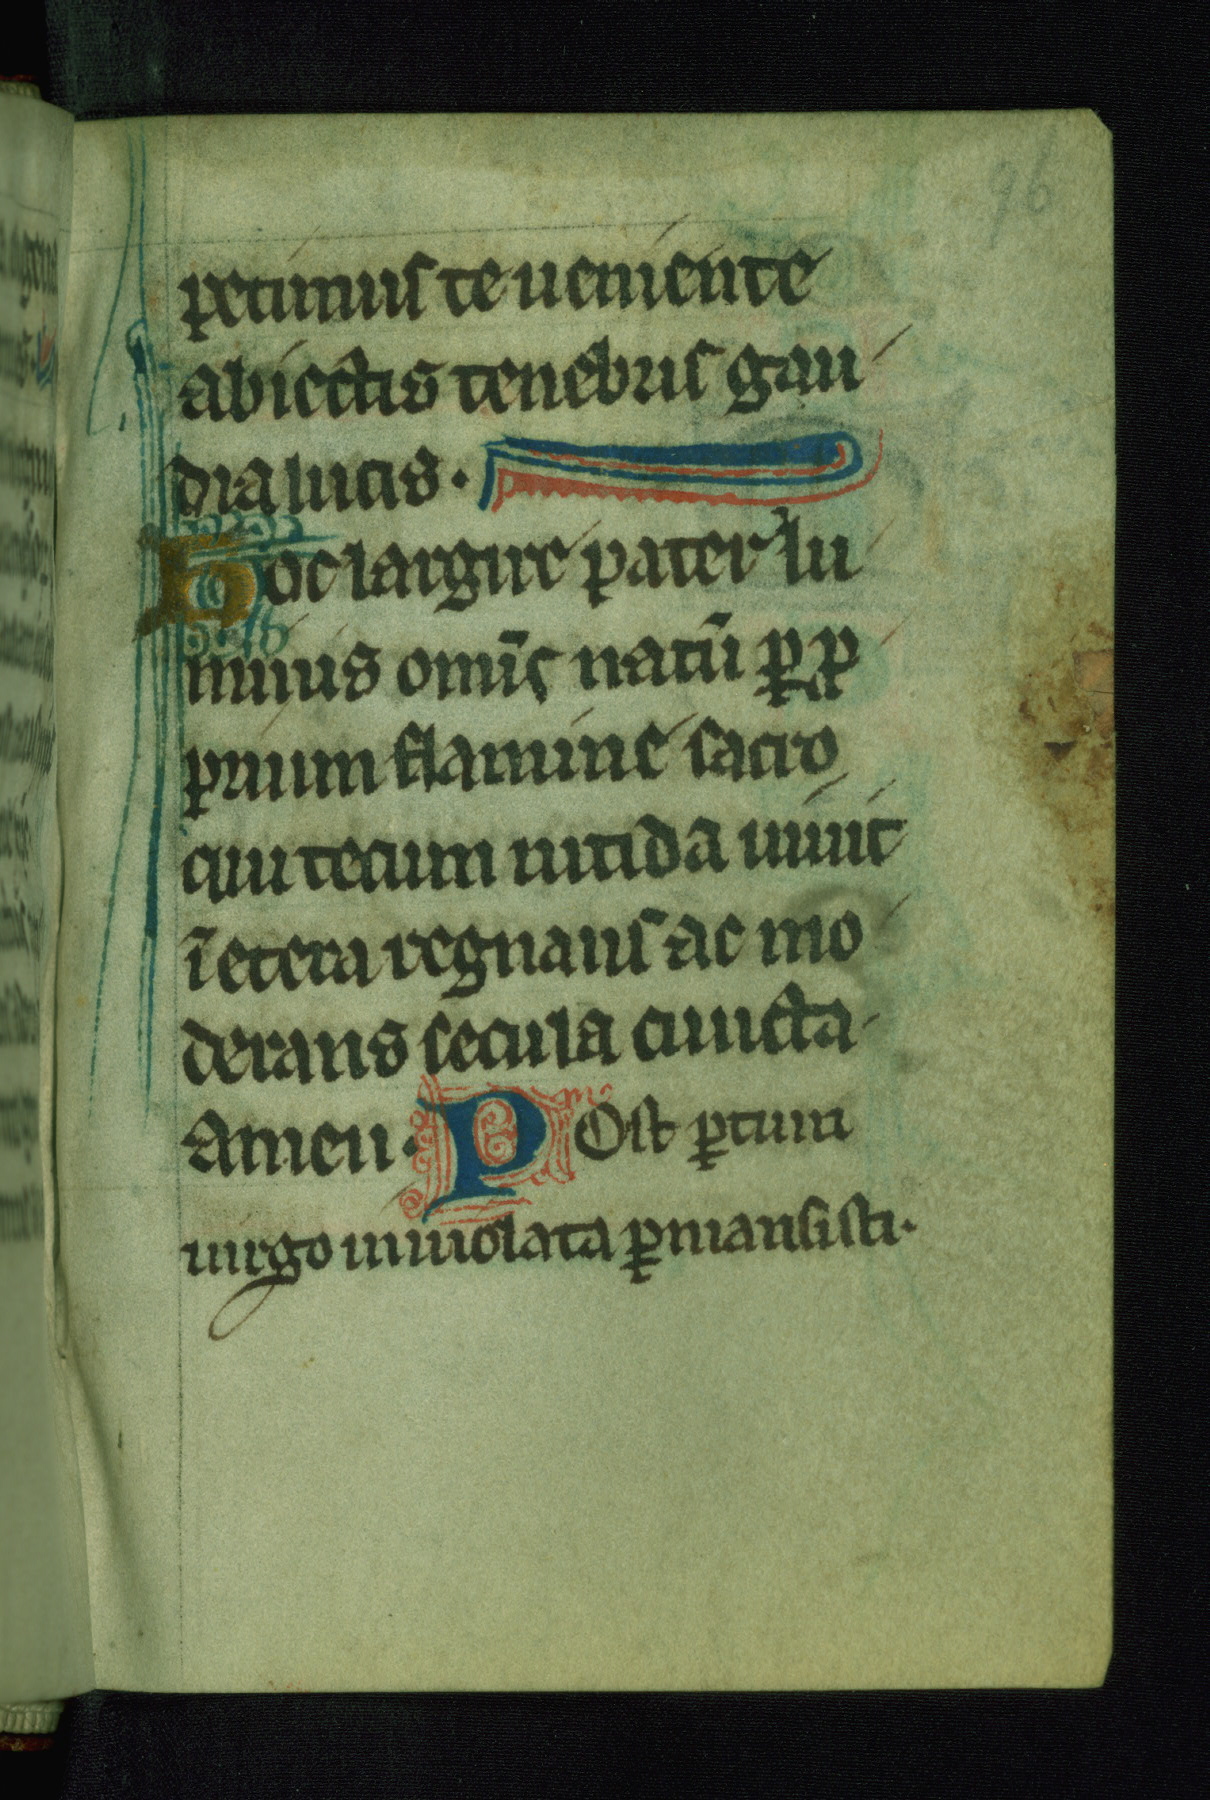 96
petimus te ueniente
abiectis tenebris gau
dia lucis.
Hoc largire pater lu
minis om̅s natu̅ ꝑ ꝓ
prium flamine sacro
qui tecum nitida uiuit
i̅ etera regnans ac mo
derans secula cuncta
Amen. Post ꝑtum
uirgo inuiolata ꝑmansisti.